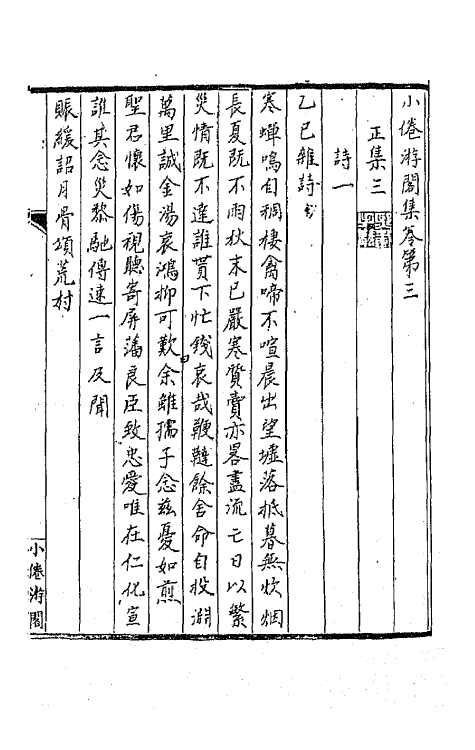 小倦游閣集卷第三
正集三
詩一
乙巳雜詩
寒蟬鳴自稠棲禽啼不喧晨出望墟落抵暮無炊烟
長夏既不雨秋末已嚴寒質賣亦畧盡流亡日以繁
災情既不達誰貰下忙錢哀哉鞭韃餘舍命自投淵
萬里誠金湯哀鴻抑可歎余雖孺子念茲憂如煎
聖君懷如傷視聽寄屏藩良臣致忠愛唯在仁化宣
誰其念災黎馳傳速一言及聞
賑緩詔月骨項荒村
小倦游閣